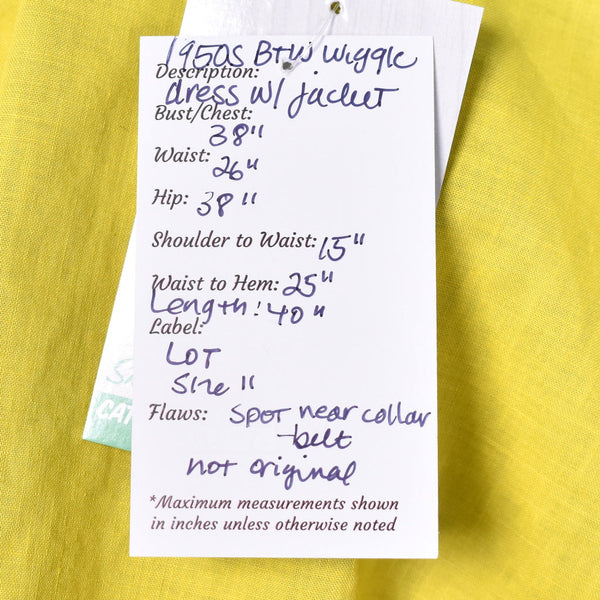 1950s B+W wiggle
Description:
dress w/ jacket
Bust/Chest:
38"
Waist:
26"
Hip: 38"
Shoulder to Waist: 15"
Waist to Hem: 25"
Length: 40"
Label:
LOT
Size 11
Flaws: Spot near collar
-belt
not original
*Maximum measurements shown
in inches unless otherwise noted
CAT